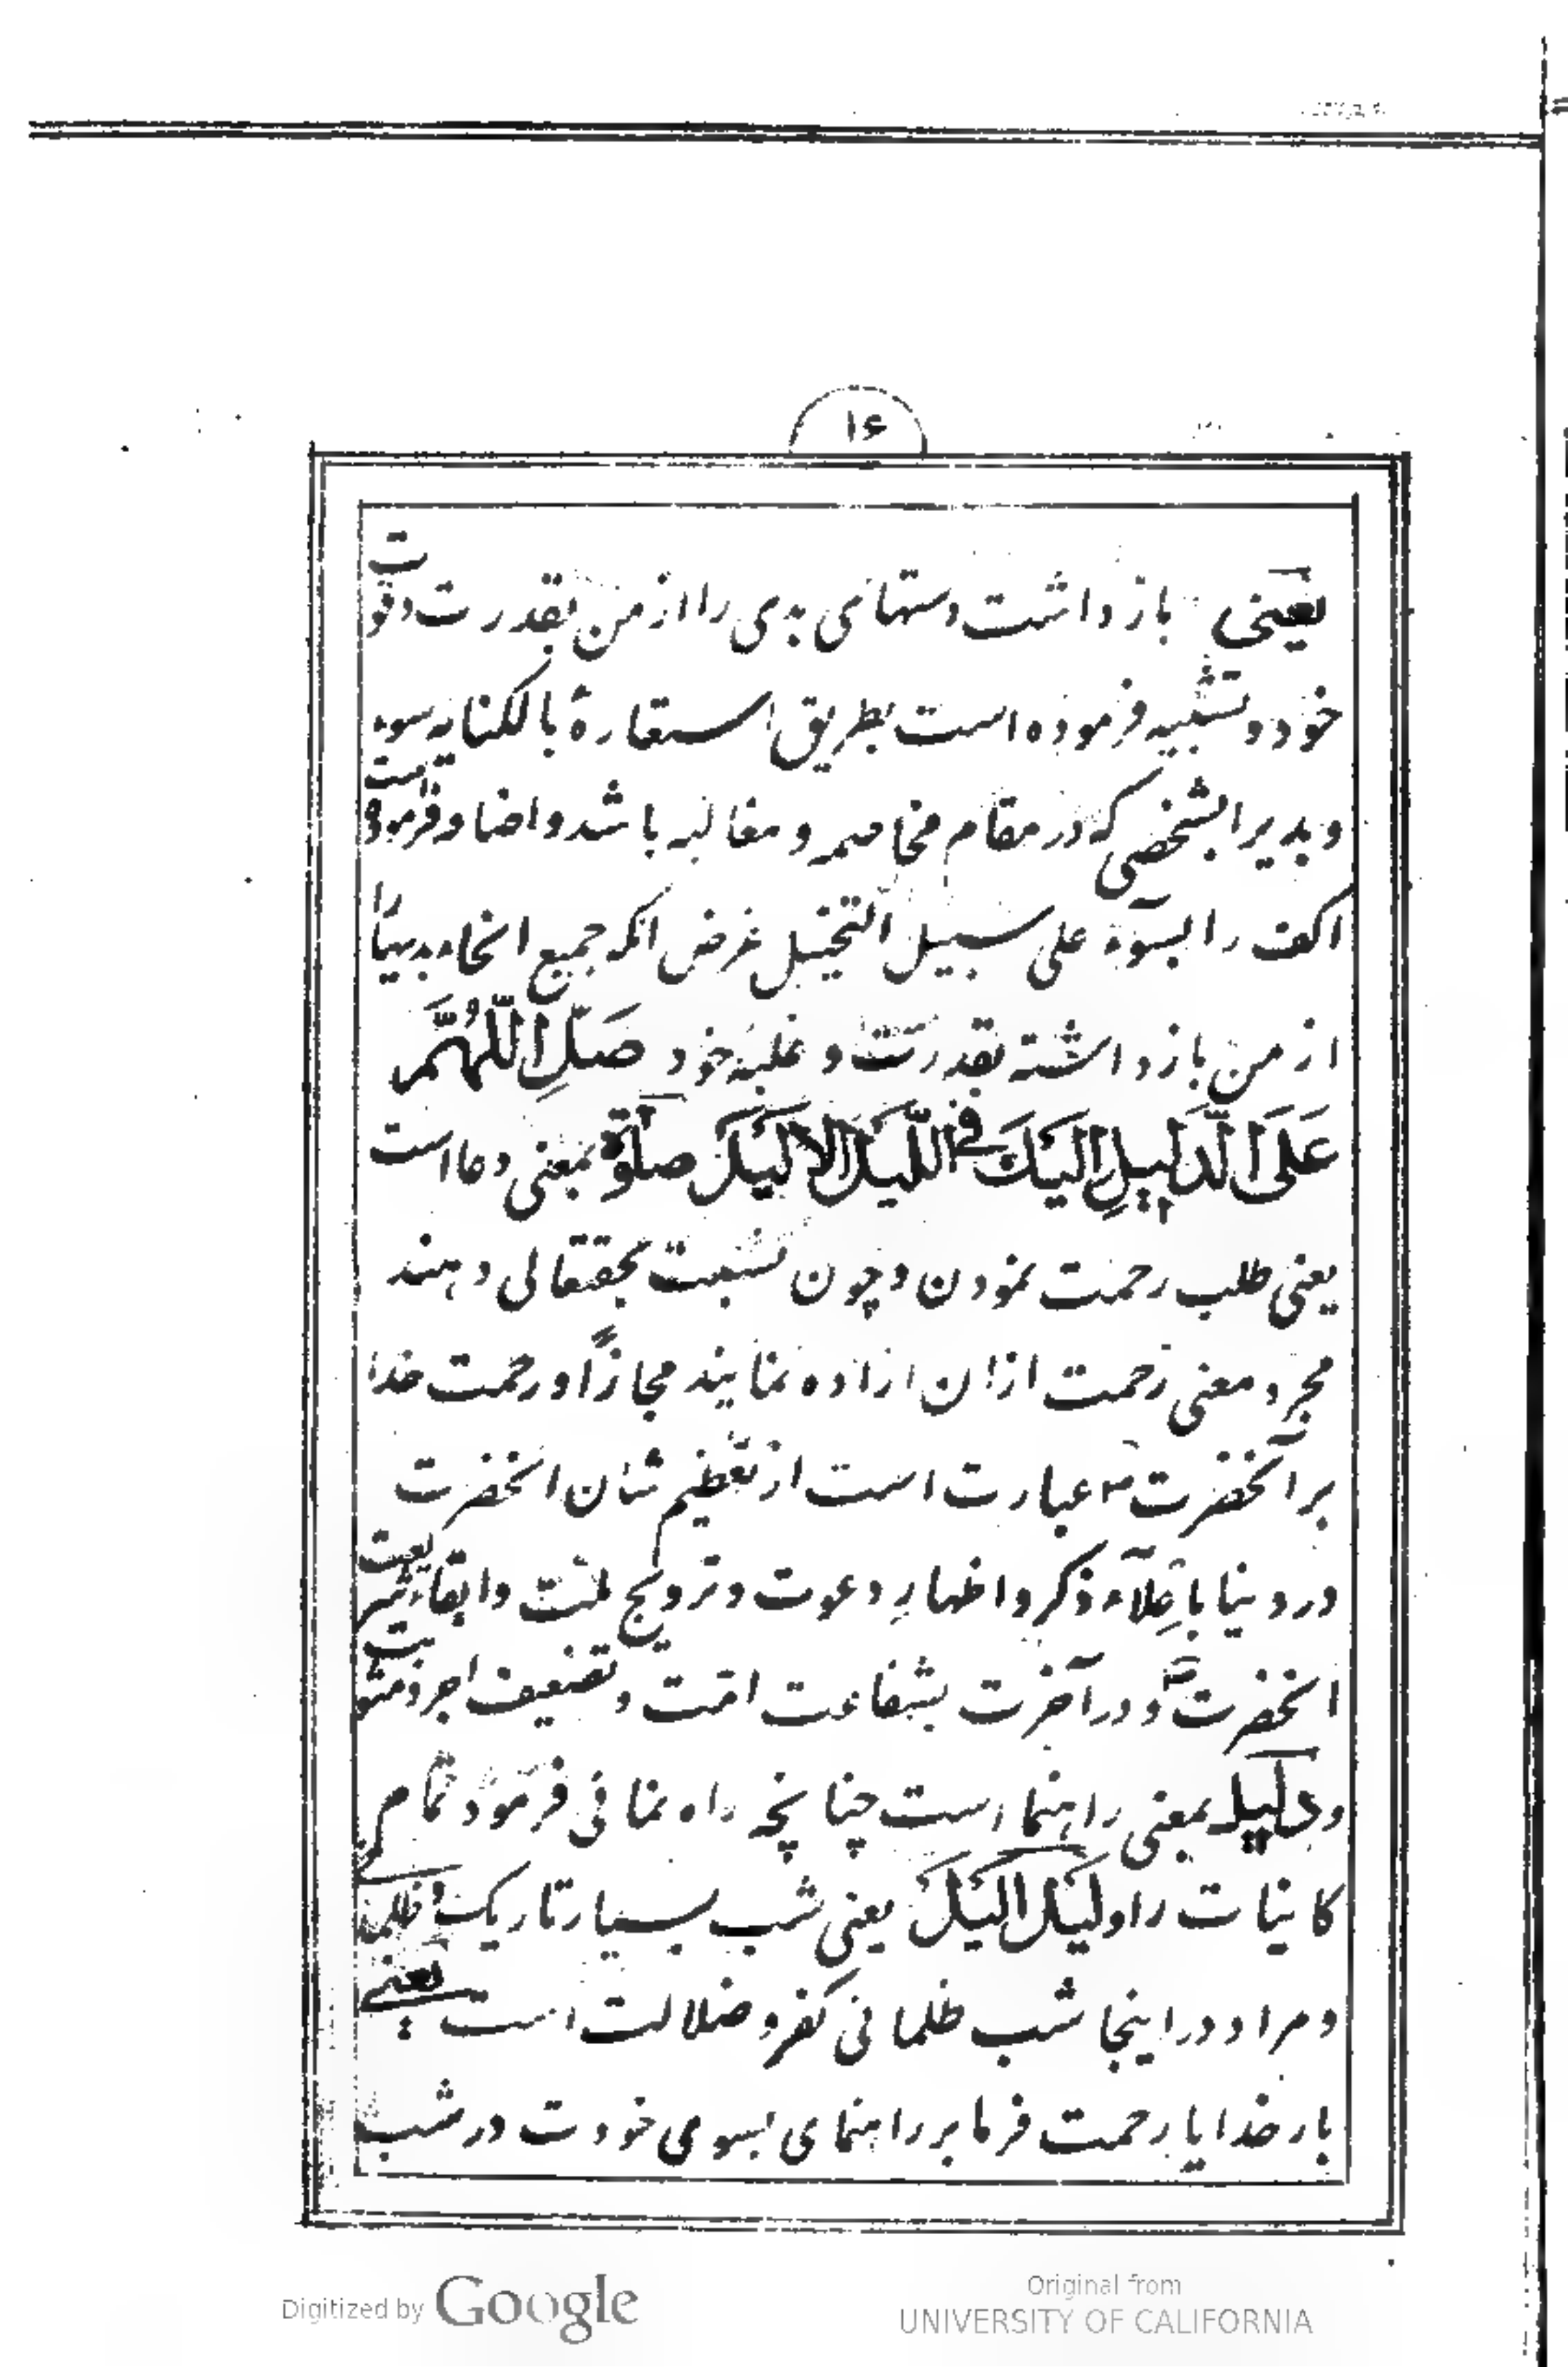 ۱۶
یعنی باز داشت دستهای بدی را از من بقدرت و قوت
خود و تشبیه فرموده است بطریق استعارهٔ بالکنایه سوء
و بدیرا بشخصی که در مقام مخاصمه و مغالبه باشد و اضافت فرموده
اکف را بسوء علی سبیل التخییل غرض انکه جمیع انحاء بدیها را
از من باز داشته بقدرت و غلبهٔ خود صَلِّ اللّٰهُمَّ
عَلَی الدَّلِیلِ اِلَیْكَ فِی اللَّیْلِ الاَلْیَلِ صلوٰة بمعنی دعا است
یعنی طلب رحمت نمودن و چون نسبت بحقتعالی دهند
مجرد معنی رحمت ازان اراده نمایند مجازاً و رحمت خدا
بر آنحضرت ص عبارت است از تعظیم شان انحضرت
در دنیا باعلاء ذکر و اظهارِ دعوت و ترویج ملت و ابقاء شریعت
انحضرت و در آخرت بشفاعت امت و تضعیف اجر و مثوبت
و دلیل بمعنی راهنما است چنانچه راه نمائی فرمود تمام
کاینات را و لَیْلِ اَلْیَلْ یعنی شب بسیار تاریک و ظلمانی
و مراد در اینجا شب ظلمانی کفر و ضلالت است یعنی
بار خدایا رحمت فرما بر راهنمای بسوی خودت در شب
Digitized by Google
Original from
UNIVERSITY OF CALIFORNIA